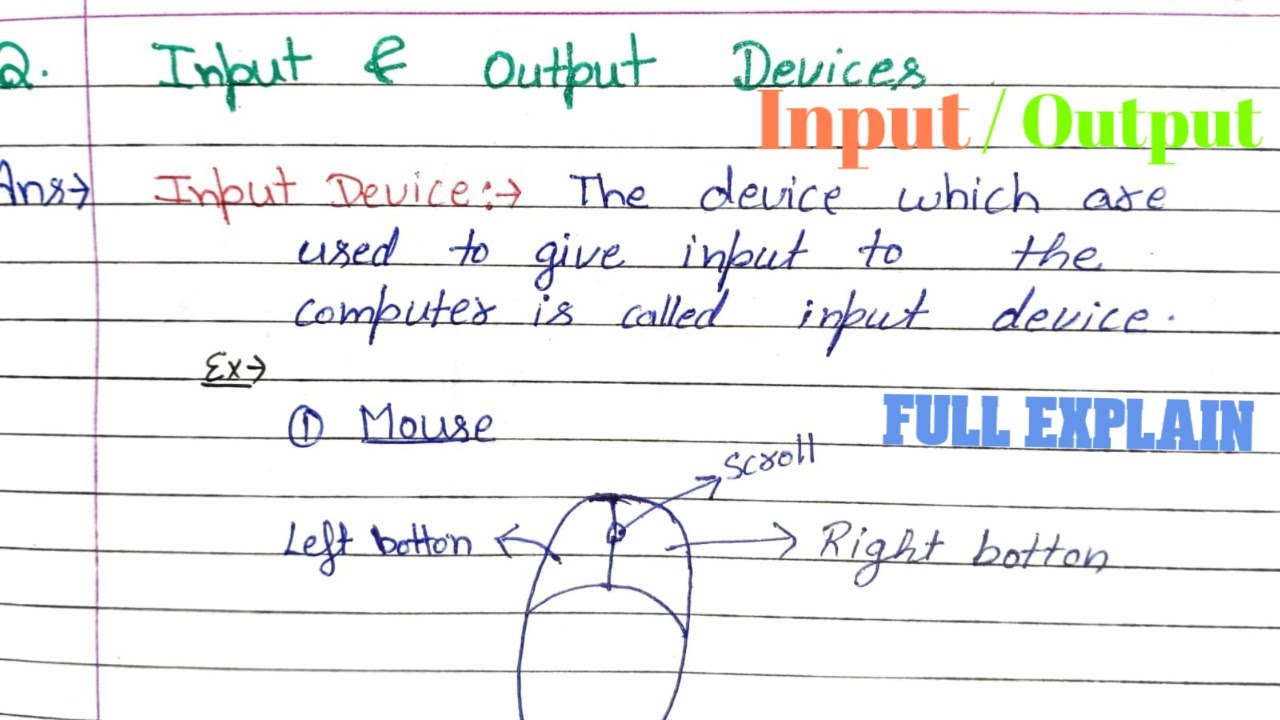 Q. Input & Output Devices
Input / Output
Ans→ Input Device:→ The device which are
used to give input to the
computer is called input device.
Ex→
① Mouse
FULL EXPLAIN
Scroll
Left botton
Right botton